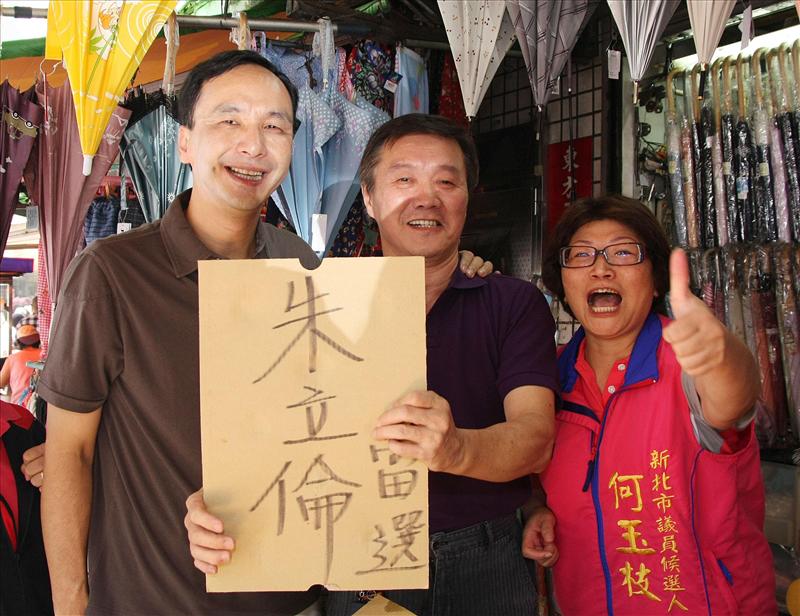 朱立倫
當選
新北市議員候選人
何玉枝
東